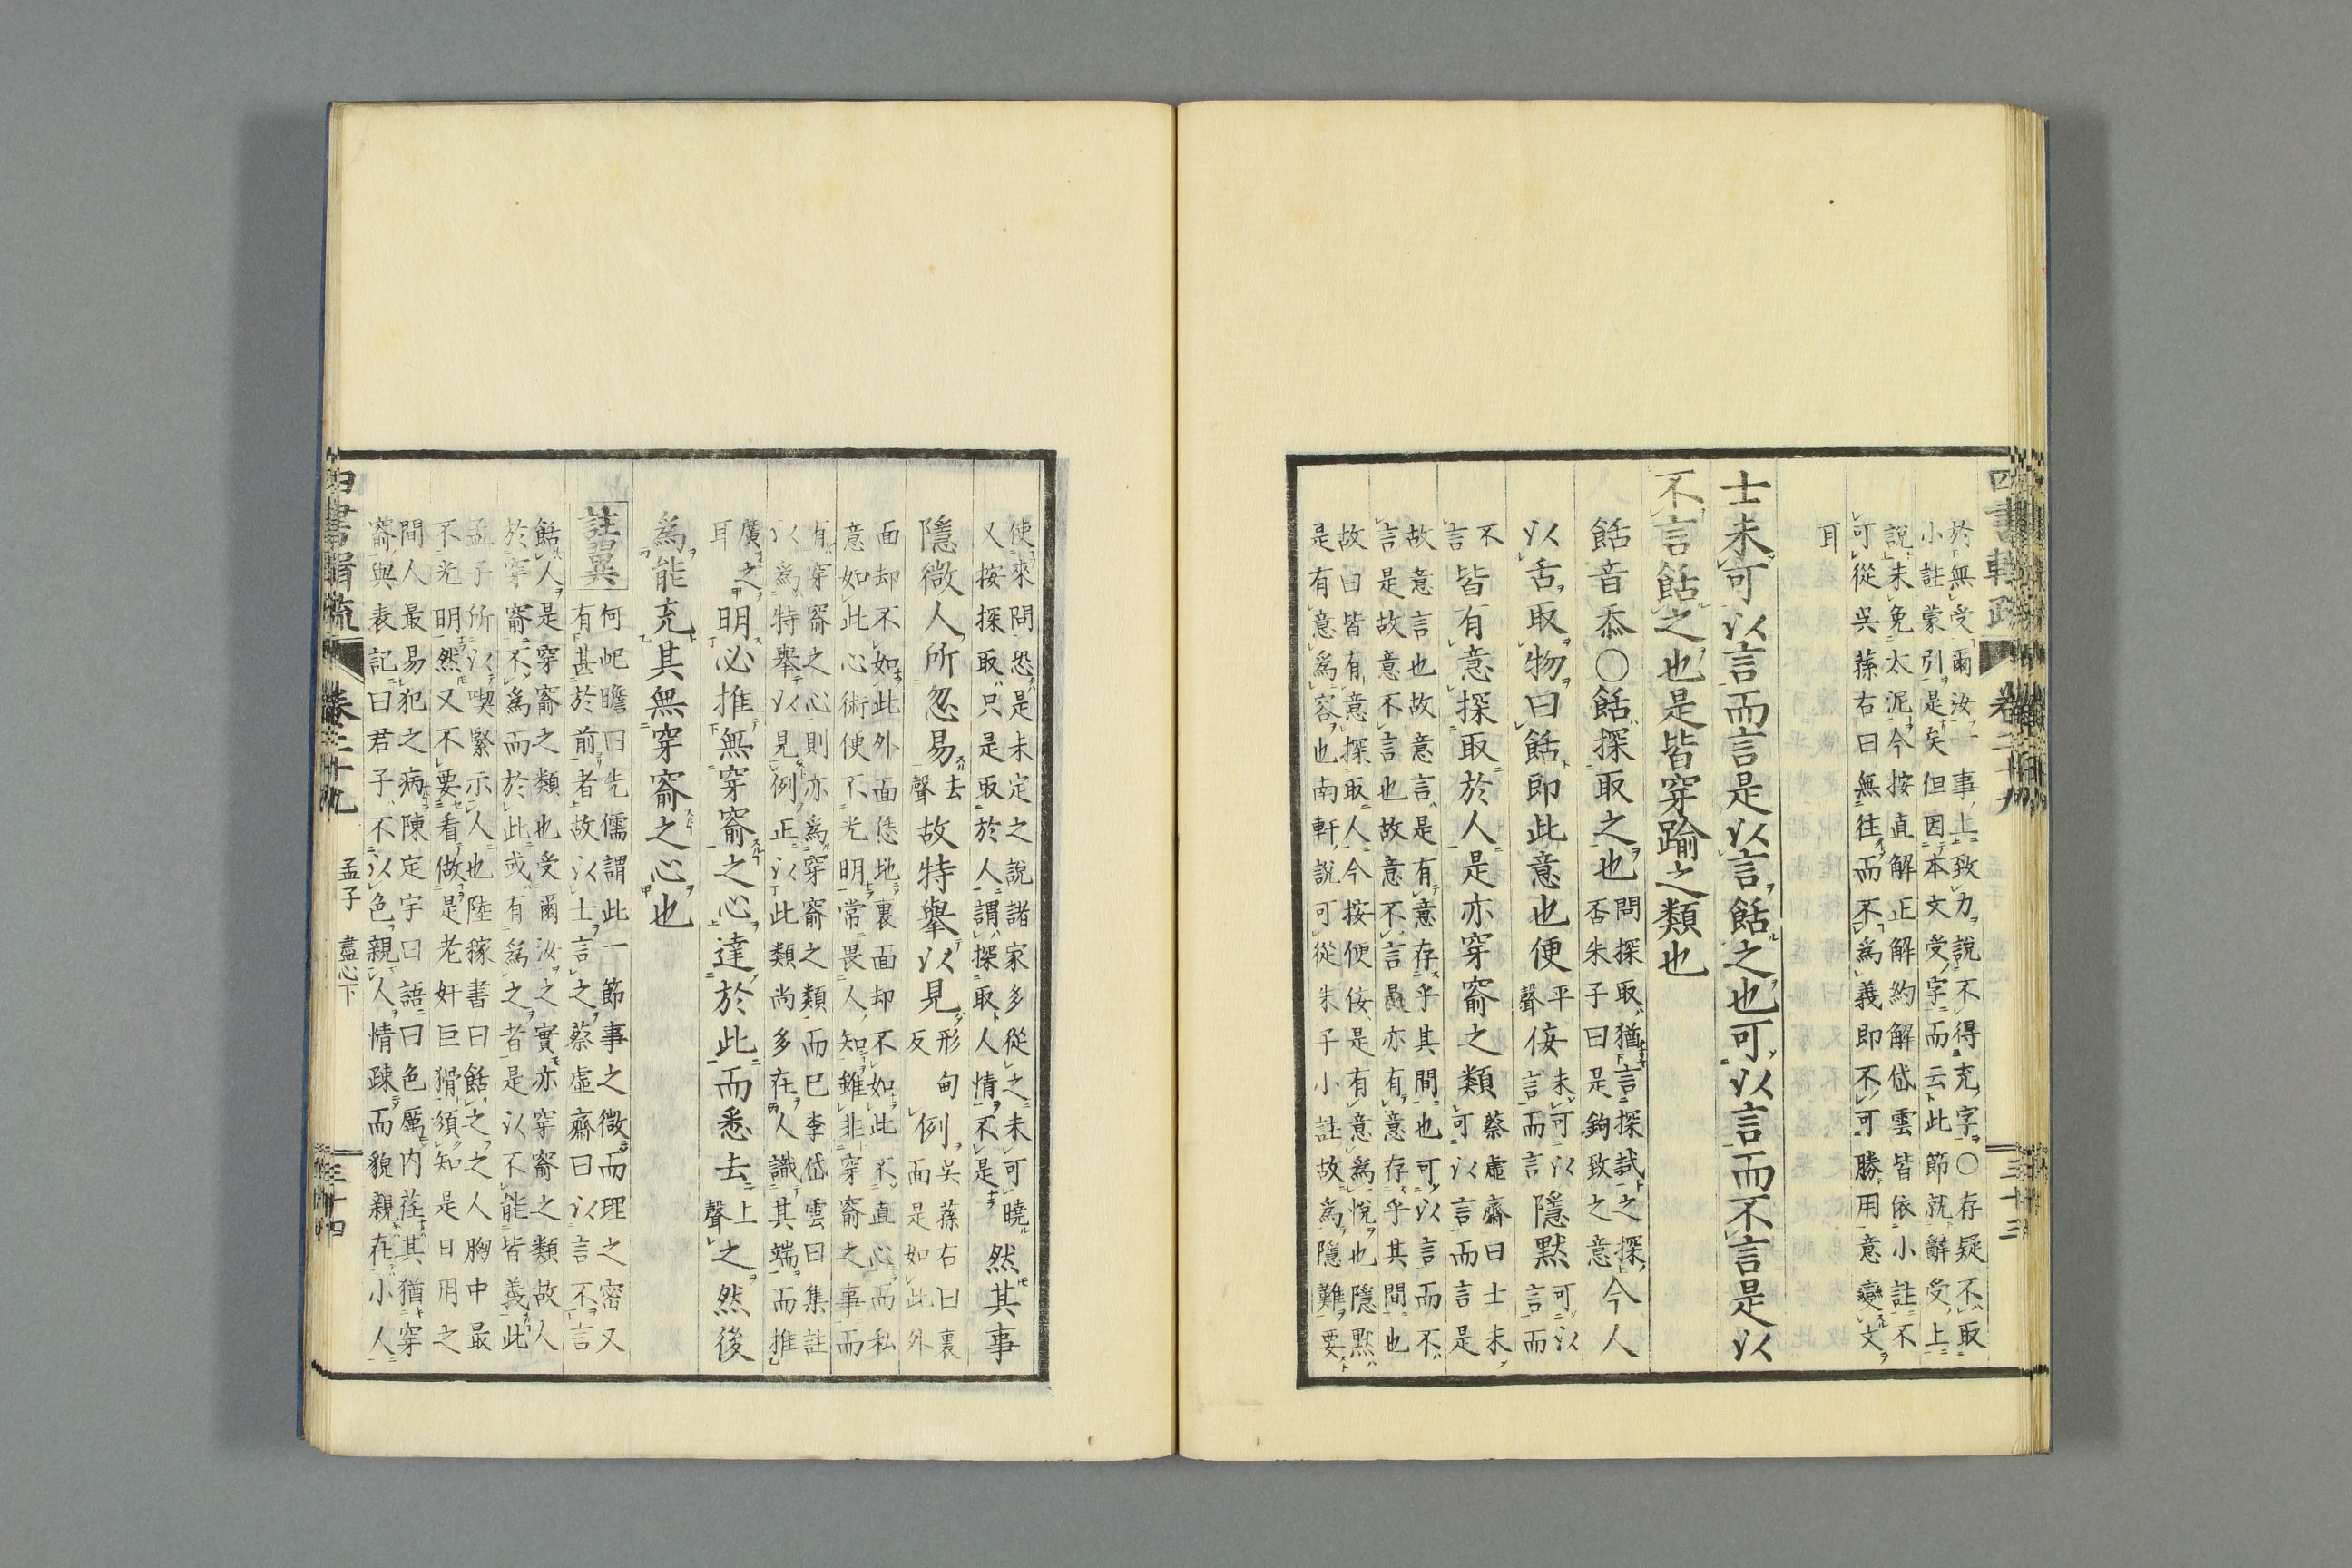 四書輯疏 卷二十九 三十三
於無受爾汝 事上致力說不得充字○存疑不取
小註蒙引是矣但因本文受字而云此節就辭受上
說未免太泥今按直解正解約解岱雲皆依小註不
可從吳蓀右曰無往而不爲義即不可勝用意變文
耳
士未可以言而言是以言餂之也可以言而不言是以
不言餂之也是皆穿踰之類也
餂音忝○餂探取之也
問探取猶言探試之探
否朱子曰是鉤致之意
今人
以舌取物曰餂即此意也便
平
聲
佞
未可以
言而言
隱默
可以
言而
不
言
皆有意探取於人是亦穿窬之類
蔡虛齋曰士未
可以言而言是
故意言也故意言是有意存乎其間也可以言而不
言是故意不言也故意不言愚亦有意存乎其間也
故曰皆有意探取人今按便佞是有意爲悅也隱默
是有意爲容也南軒說可從朱子小註故爲隱難要
使來問恐是未定之說諸家多從之未可曉
又按探取只是取於人謂探取人情不是
然其事
隱微人所忽易
去
聲
故特舉以見
形甸
反
例
吳蓀右曰裏
而是如此外
面却不如此外面恁地裏面却不如此不直心而私
意如此心術便不光明常畏人知雖非穿窬之事而
有穿窬之心則亦爲穿窬之類而已李岱雲曰集註
以爲特舉以見例正以此類尚多在人識其端而推
廣之
耳
明必推無穿窬之心達於此而悉去
上
聲
之然後
爲能充其無穿窬之心也
註異
何屺瞻曰先儒謂此一節事之微而理之密又
有甚於前者故以士言之蔡虛齋曰以言不言
餂人是穿窬之類也受爾汝之實亦穿窬之類故人
於穿窬不爲而於此或有爲之者是以不能皆義此
孟子所以喫緊示人也陸稼書曰餂之之人胸中最
不光明然又不要看做是老奸巨猾須知是日用之
間人最易犯之病陳定宇曰語曰色厲內荏其猶穿
窬與表記曰君子不以色親人情疎而貌親在小人
四書輯疏 卷二十九 孟子 盡心下 三十四